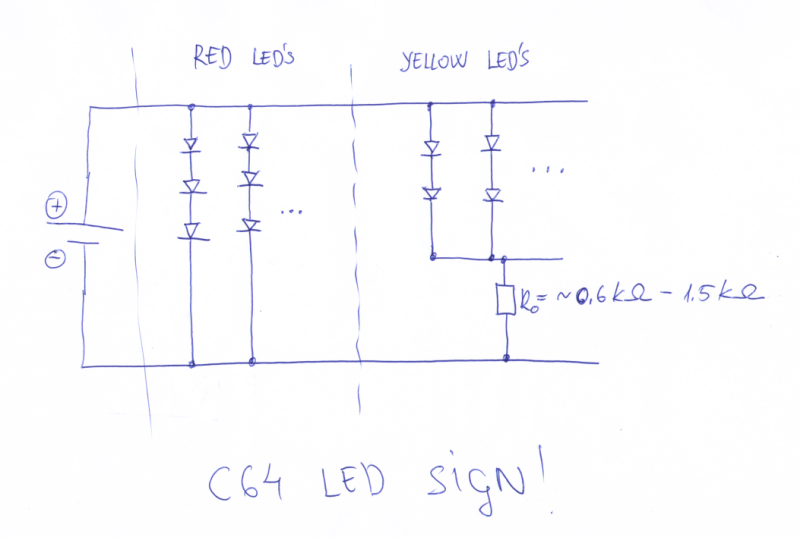 RED LED'S
YELLOW LED'S
+
...
...
−
R₀= ~0,6kΩ - 1.5kΩ
C64 LED SIGN!